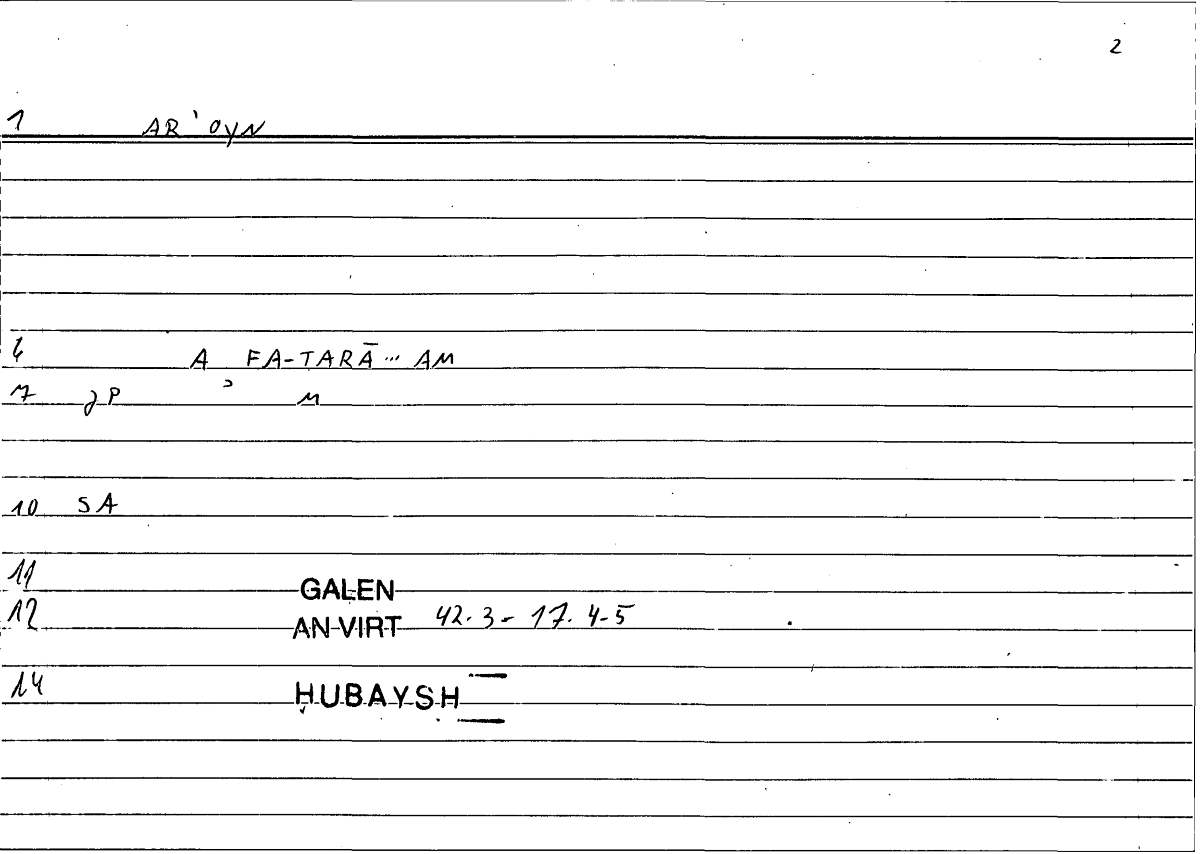 2
1 AR ' OYN
4 A FA-TARĀ... AM
7 P ɔ M
10 SA
11 GALEN
12 AN VIRT 42.3 - 17.4-5
14 ḤUBAYSH